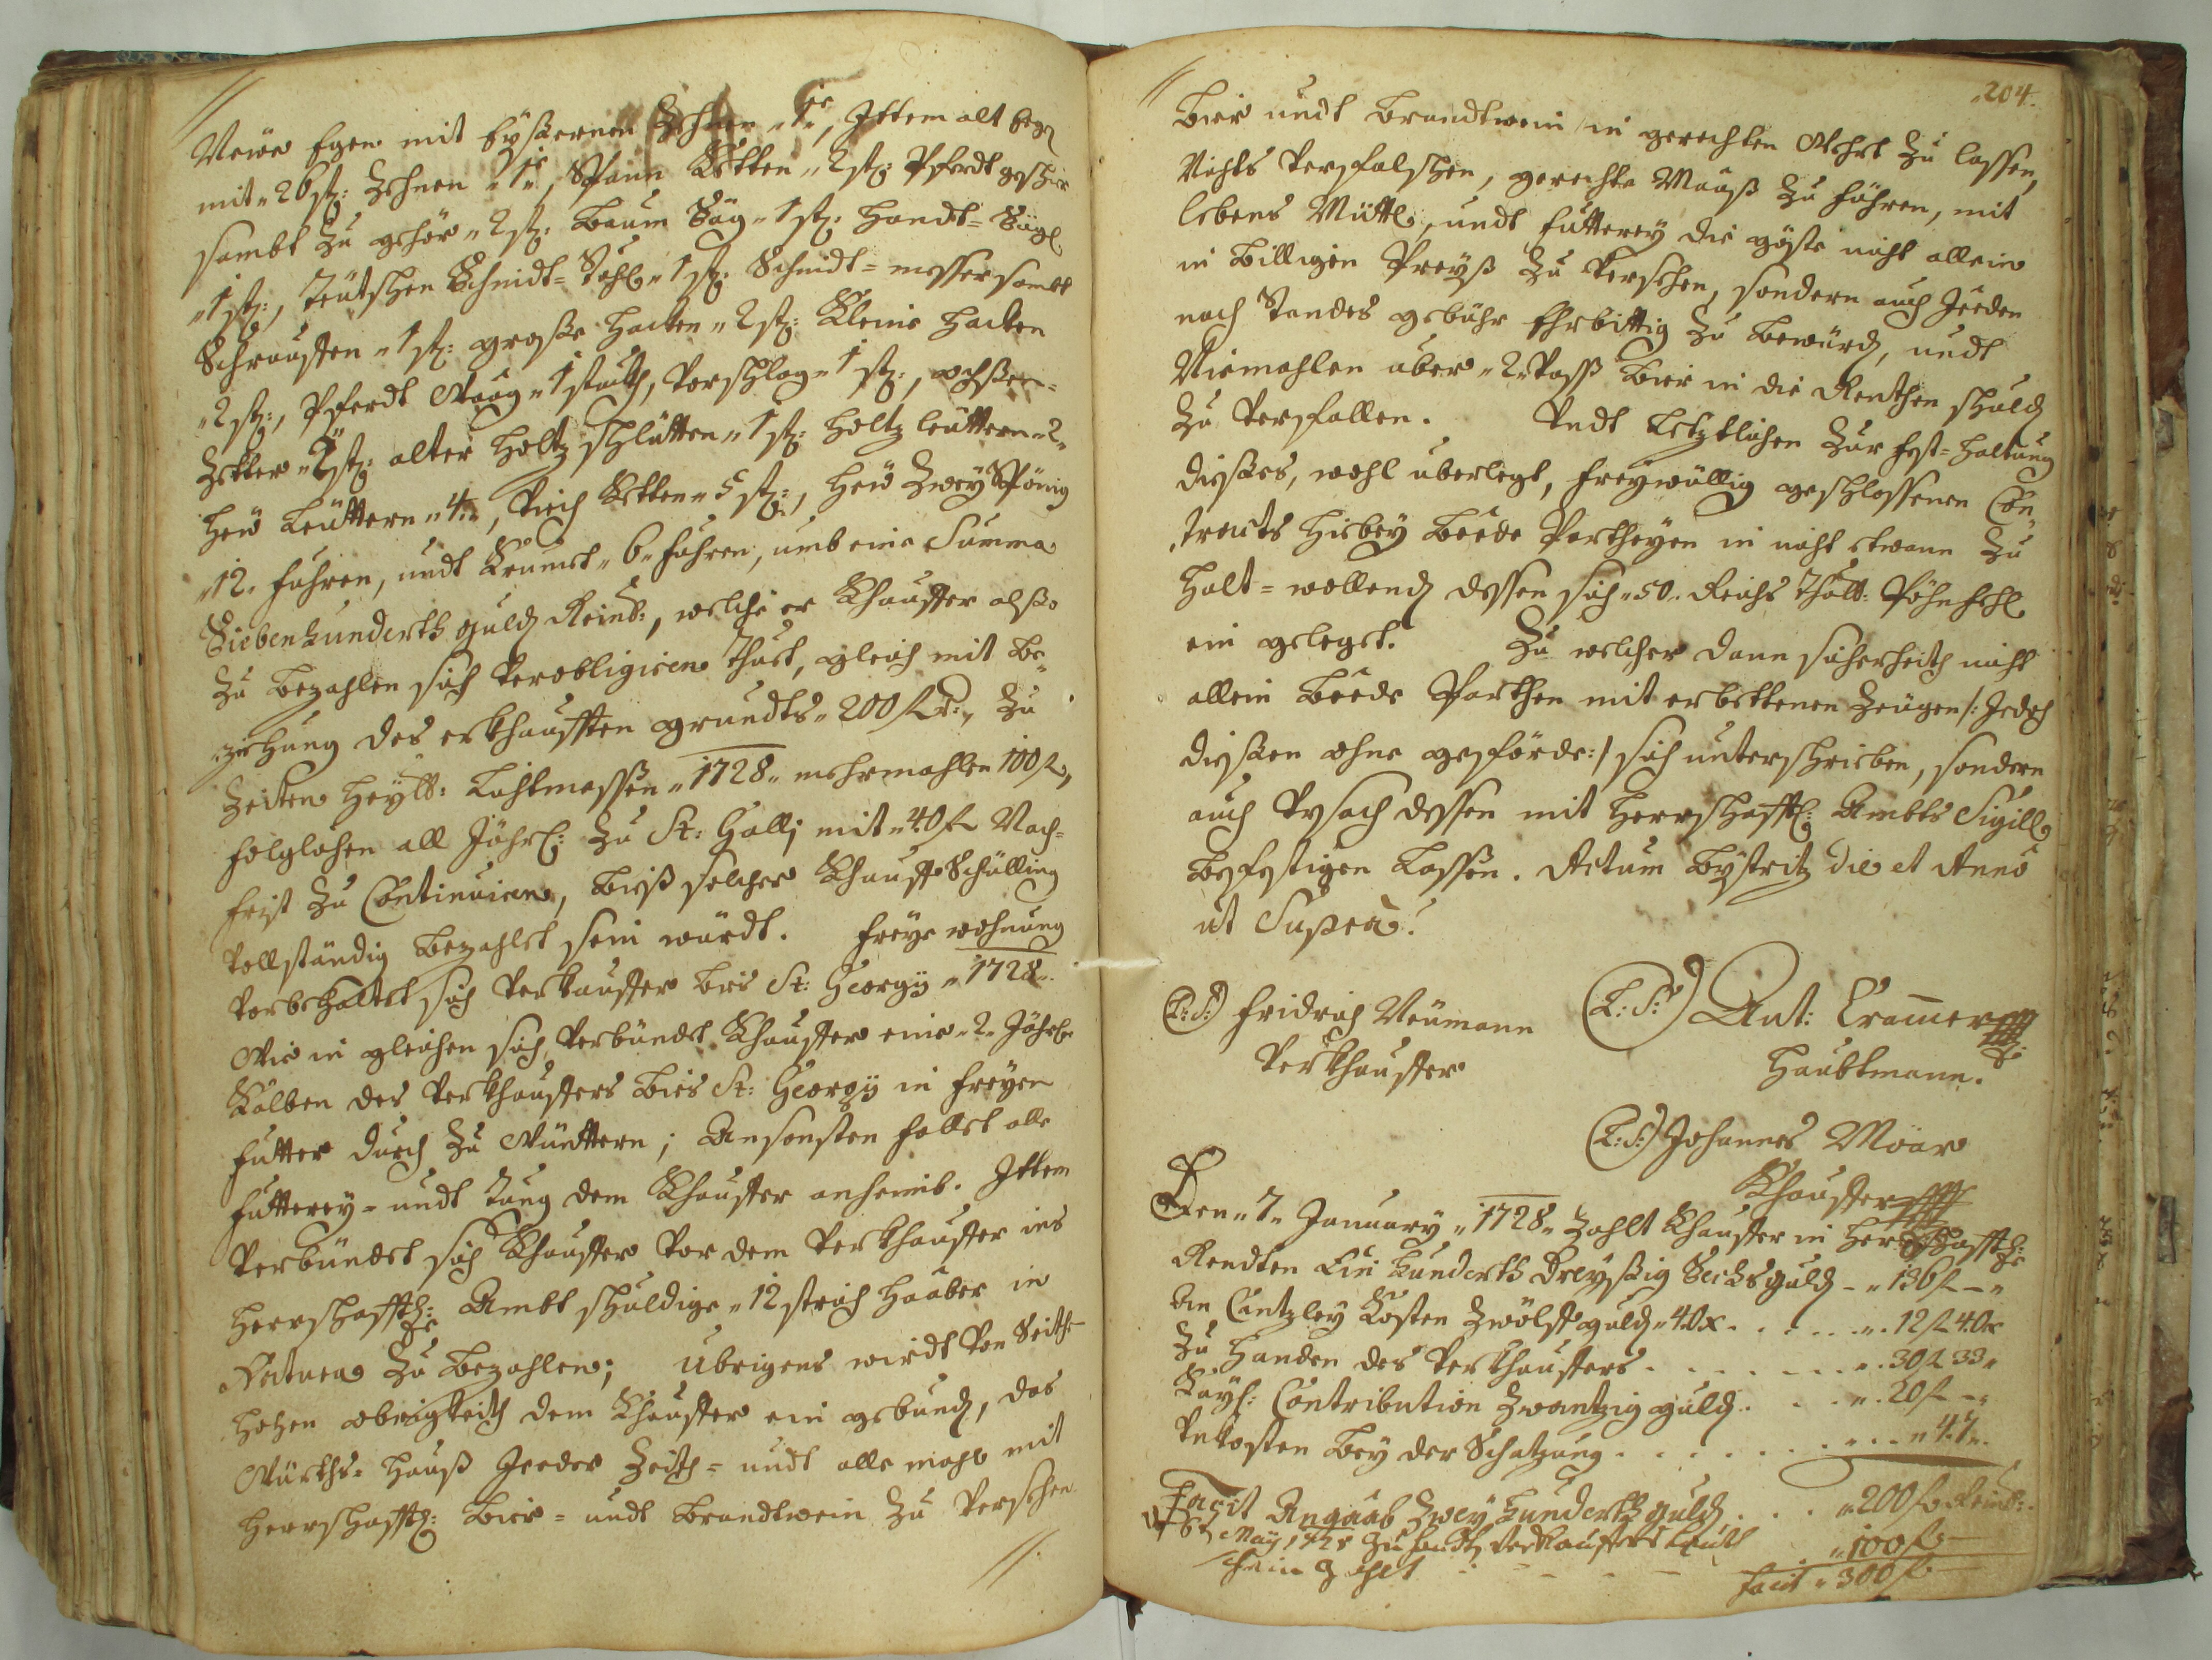 Neüe Egen mit Eyßernen Zehnen „1„ Ittem alt Egen
mit „26 stz: Zehnen „1„, Spann Ketten „2 stz: Pferdt geschir
sambt Zu gehör „2 stz: Baum Säg „1 stz: Handt= Sägl
„1 stz:, Teütschen Schnidt= Stuhl „1 stz: Schnidt= messer sambt
Schrauffen „1 stz: große Hacken „2 stz: Kleine Hacken
„2 stz:, Pferdt Waag „1 stuckh, Vorschlag „1 stz:, ochßen=
Zetter „2 stz: alter Holtz schlütten „1 stz: Holtz leüttern „2„
Heü Leüttern „4„, Viech Ketten „5 stz:, Heü Zwey Spönig
„12. fuhren, undt Krumet „6„ fuhren, umb eine Summa
Siebenhunderth guld Reinl:, welche er Khauffer alßo
Zu bezahlen sich Verobligiren thuet, gleich mit be„
„ziehung des erkhaufften grundts „200 f. R:„ Zu
Zeiten Heyll: Lichtmessen „1728„ mehrmahlen 100 f„
folglichen all Jährl: Zu St: Galli mit „40 f Nach=
frist Zu Continuiren, biß solcher Khauff Schilling
Vollständig bezahlet sein würdt. freye wohnung
Vorbehaltet sich Verkauffer bis St: Georgy „1728„.
Wie in gleichen sich Verbündet Khauffer eine „2„ Jährige
Kalben des Verkhauffers bies St: Georgy in freyen
Futter durch Zu Wüntern; Ansonsten fallet alle
Futterey= undt Tung dem Khauffer anheimb. Ittem
Verbündet sich Khauffer Vor dem Verkhauffer ins
Herrschafftl: Ambt schuldige „12 strich Haaber in
Natura Zu bezahlen; Ubrigens wirdt Von Seithe
hohen obrigkeith dem Khauffer ein gebund, das
Würths= Hauß Jeeder Zeith= undt alle mahl mit
Herrschafftl: Bier= undt Brandtwein Zu Versehen
//.
204.
Bier undt Brandtwein in gerechten Wehrt Zu lassen,
Nichts Verfalschen, gerechte Maaß Zu führen, mit
lebens Müttl, undt Futterey die gäste nicht allein
in billigen Preyß Zu Versehen, sondern auch Jeeden
nach Standes gebühr Ehrbittig Zu bewürd, undt
Niemahlen über „2„ Vass Bier in die Renthen schuld
Zu Verfallen. Undt Letztlichen Zur fest= Haltung
dießes, wohl überlegt, freywüllig geschlossenen Con„
„tracts hiebey beede Partheyen in nicht etwann Zu
Halt= wollend dessen sich „50„ Reichs Thall: Pöhnfehl
ein gelegt. Zu welcher dann sicherheith nicht
allein beede Parthen mit erbettenen Zeügen /: Jedoch
dießen ohne gefährde :/ sich unterschrieben, sondern
auch Vrsach dessen mit Herrschafftl: Ambts Sigill
befestigen Lassen. Actum Bystritz die et Anno
ut Supra.
(L: S:) Fridrich Neümann
Verkhauffer
(L: S:) Ant: Cramer
Haubtmann.
(L: S:) Johannes Möär
Khauffer
Den „7„ January „1728„ Zahlt Khauffer in Herrschafftl:
Rendten Ein hunderth Dreyßig Sechs guld - „136 f - „
An Cantzley Kosten Zwölff guld „40 x . . . . „. 12 f 40 x
Zu Handen des Verkhauffers . . . . . . „. 30 f 33 „
Kayß: Contribution Zwantzig guld . . . „. 20 f - „
Vnkosten bey der Schatzung . . . . . . . „ 47 „.
Facit Angaab Zwey hunderth guld . . . „200 f Reinl:.
6t May 1728 Zu handt Verkauffers Leüth
100 f
facit „ 300 f